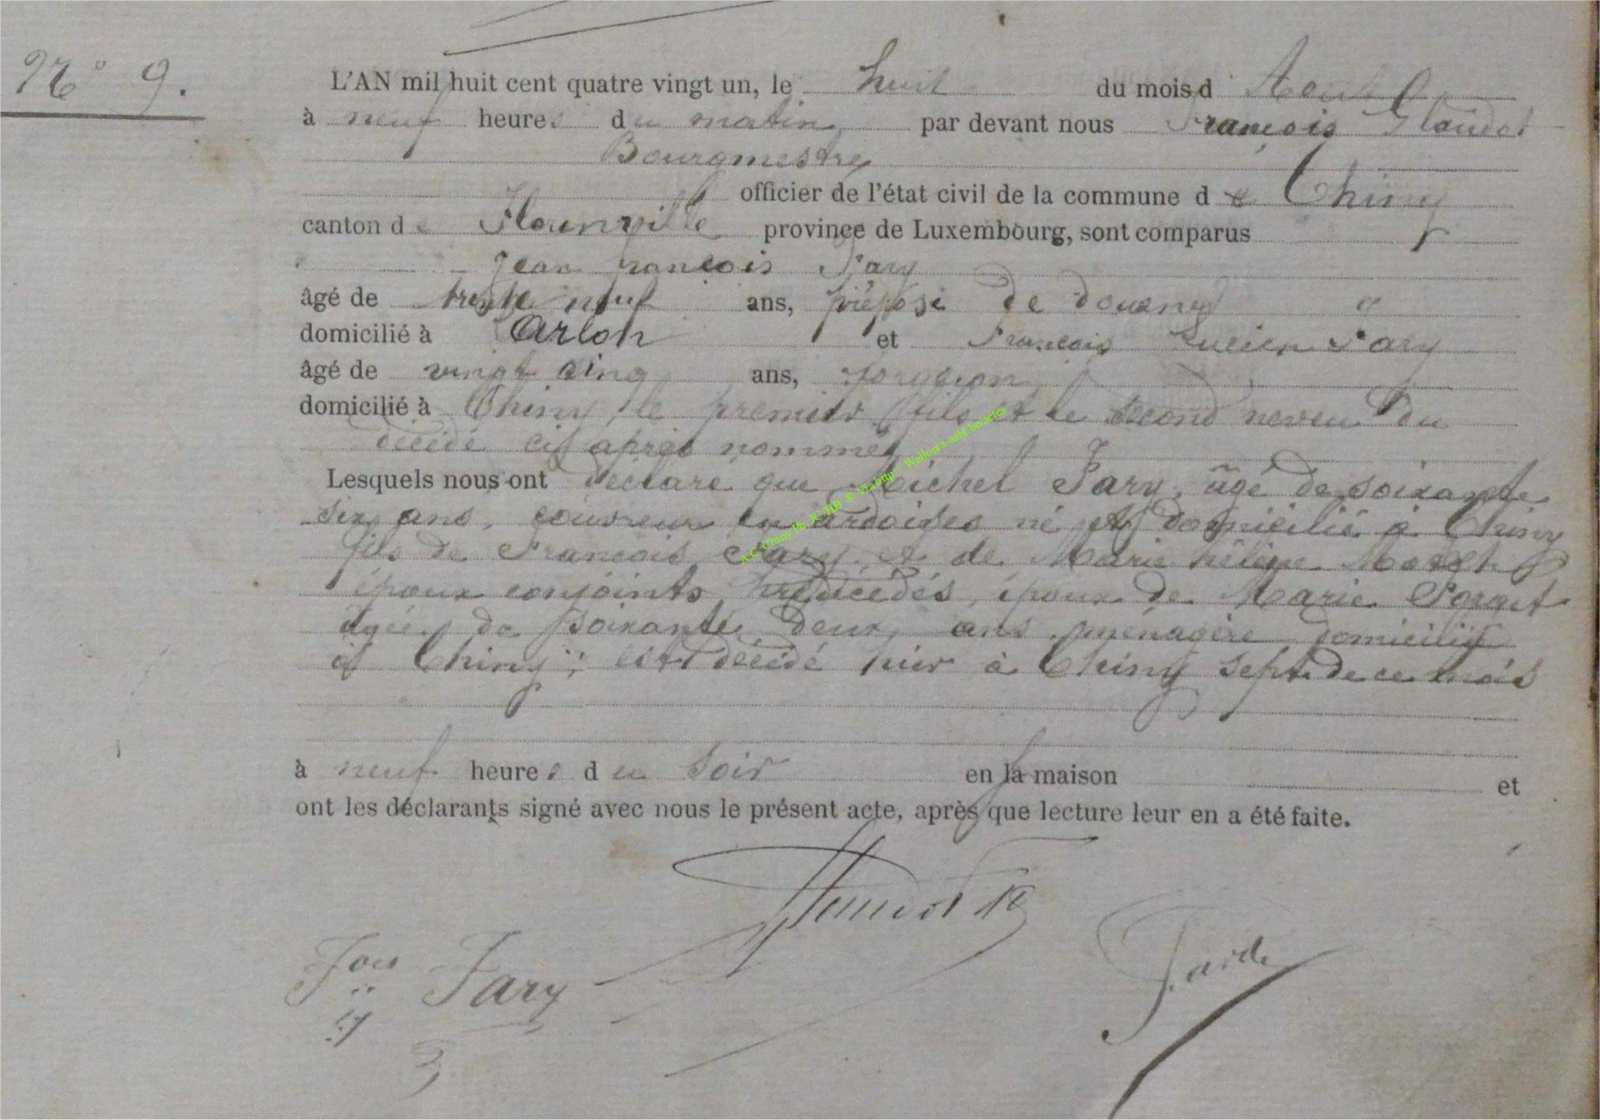 N° 9.
L'AN mil huit cent quatre vingt un, le huit du mois d Aout
à neuf heures du matin, par devant nous François Glaudot
Bourgmestre
officier de l'état civil de la commune de Chiny
canton de Florenville province de Luxembourg, sont comparus
Jean François Jary
âgé de trente neuf ans, préposé de douanes
domicilié à Arlon et François Lucien Jary
âgé de vingt cinq ans, forgeron
domicilié à Chiny, le premier fils et le second neveu du
décédé ci après nommé
Lesquels nous ont déclaré que Michel Jary, âgé de soixante
six ans, couvreur en ardoises né et domicilié à Chiny
fils de François Jary et de Marie
époux conjoints prédécédés, époux de Marie
agée de soixante deux ans ménagère domiciliée
à Chiny; est décédé hier à Chiny sept de ce mois
à neuf heures du soir en la maison et
ont les déclarants signé avec nous le présent acte, après que lecture leur en a été faite.
Jary